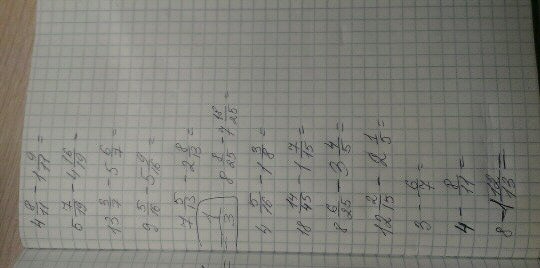 4 8/11 - 1 9/11 =
5 7/19 - 4 16/19 =
13 3/7 - 5 6/7 =
9 5/16 - 5 9/16 =
7 5/13 - 2 8/13 =
8 8/25 - 7 18/25 =
4 5/16 - 1 3/8 =
18 14/45 - 1 7/15 =
8 6/25 - 3 4/5 =
12 2/15 - 2 1/5 =
3 - 6/7 =
4 - 8/11 =